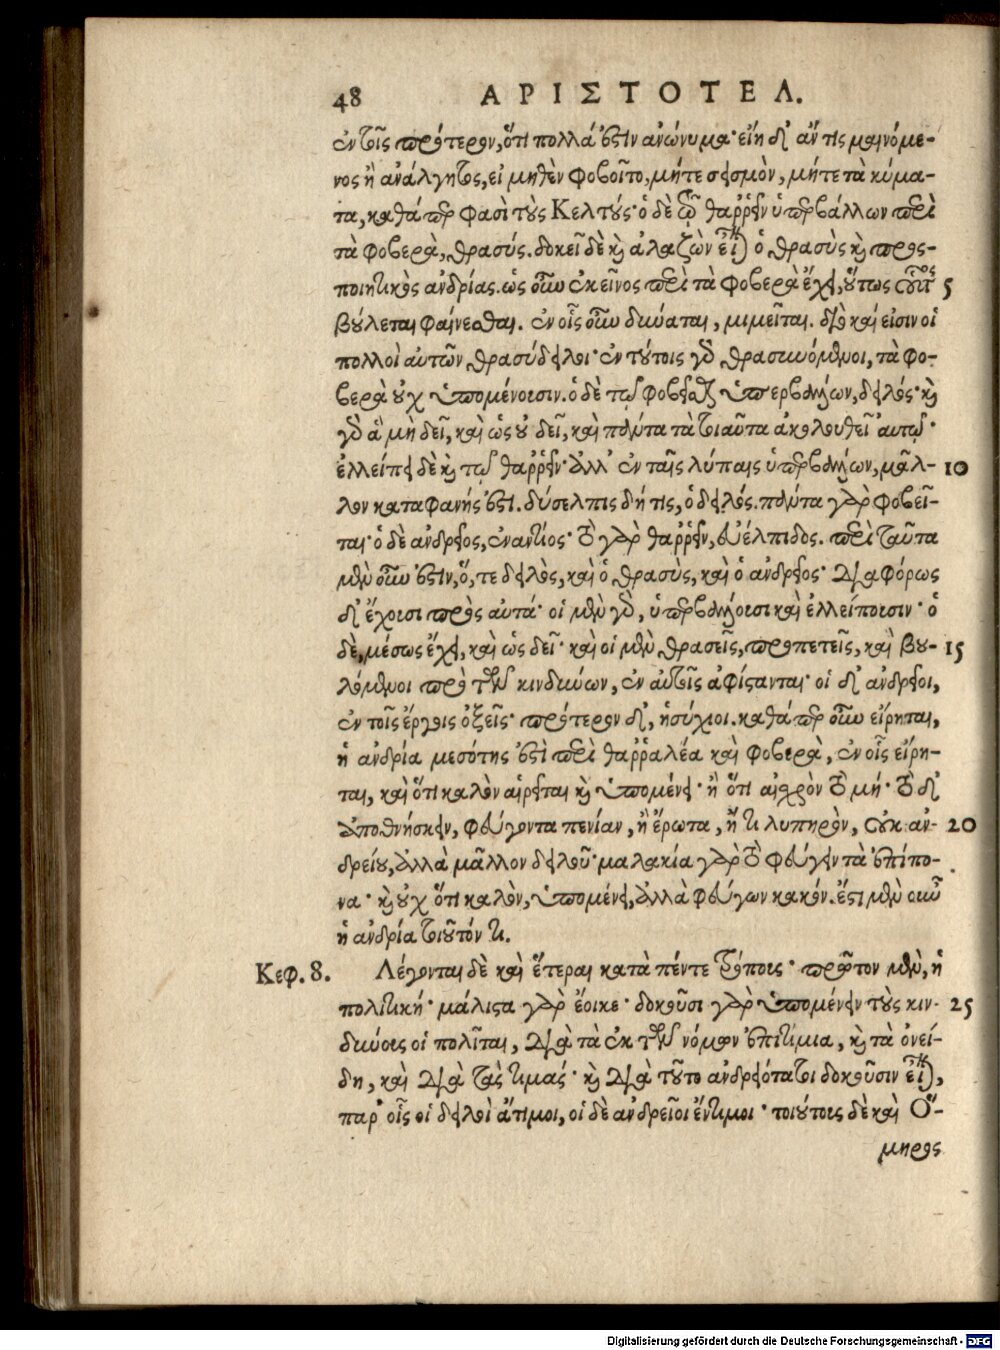 48 ΑΡΙΣΤΟΤΕΛ.
ἐν τοῖς πρότερον, ὅτι πολλά ἐστιν ἀνώνυμα· εἴη δ' ἄν τις μαινόμε-
νος ἢ ἀνάλγητος, εἰ μηθὲν φοβοῖτο, μήτε σεισμὸν, μήτε τὰ κύμα-
τα, καθάπερ φασὶ τοὺς Κελτούς· ὁ δὲ τῷ θαῤῥεῖν ὑπερβάλλων περὶ
τὰ φοβερὰ, θρασύς. δοκεῖ δὲ καὶ ἀλαζὼν εἶναι ὁ θρασὺς καὶ προσ-
ποιητικὸς ἀνδρίας. ὡς οὖν ἐκεῖνος περὶ τὰ φοβερὰ ἔχει, οὕτως οὗτος 5
βούλεται φαίνεσθαι. ἐν οἷς οὖν δύναται, μιμεῖται. διὸ καὶ εἰσιν οἱ
πολλοὶ αὐτῶν θρασύδειλοι· ἐν τούτοις γὰρ θρασυνόμενοι, τὰ φο-
βερὰ οὐχ ὑπομένουσιν. ὁ δὲ τῷ φοβεῖσθαι ὑπερβάλλων, δειλός· καὶ
γὰρ ἃ μὴ δεῖ, καὶ ὡς οὐ δεῖ, καὶ πάντα τὰ τοιαῦτα ἀκολουθεῖ αὐτῷ·
ἐλλείπει δὲ καὶ τῷ θαῤῥεῖν· ἀλλ' ἐν ταῖς λύπαις ὑπερβάλλων, μᾶλ- 10
λον καταφανής ἐστι. δύσελπις δή τις, ὁ δειλός. πάντα γὰρ φοβεῖ-
ται· ὁ δὲ ἀνδρεῖος, ἐναντίος· τὸ γὰρ θαῤῥεῖν, εὐέλπιδος. περὶ ταῦτα
μὲν οὖν ἐστιν, ὅ, τε δειλὸς, καὶ ὁ θρασὺς, καὶ ὁ ἀνδρεῖος· διαφόρως
δ' ἔχουσι πρὸς αὐτά· οἱ μὲν γὰρ, ὑπερβάλλουσι καὶ ἐλλείπουσιν· ὁ
δὲ, μέσως ἔχει, καὶ ὡς δεῖ· καὶ οἱ μὲν θρασεῖς, προπετεῖς, καὶ βου- 15
λόμενοι πρὸ τῶν κινδύνων, ἐν αὐτοῖς ἀφίστανται· οἱ δ' ἀνδρεῖοι,
ἐν τοῖς ἔργοις ὀξεῖς· πρότερον δ', ἡσύχιοι. καθάπερ οὖν εἴρηται,
ἡ ἀνδρία μεσότης ἐστὶ περὶ θαῤῥαλέα καὶ φοβερὰ, ἐν οἷς εἴρη-
ται, καὶ ὅτι καλὸν αἱρεῖται καὶ ὑπομένει· ἢ ὅτι αἰσχρὸν τὸ μή· τὸ δ'
ἀποθνήσκειν, φεύγοντα πενίαν, ἢ ἔρωτα, ἤ τι λυπηρὸν, οὐκ ἀν- 20
δρείου, ἀλλὰ μᾶλλον δειλοῦ· μαλακία γὰρ τὸ φεύγειν τὰ ἐπίπο-
να· καὶ οὐχ ὅτι καλὸν, ὑπομένει, ἀλλὰ φεύγων κακόν. ἔστι μὲν οὖν
ἡ ἀνδρία τοιοῦτόν τι.
Κεφ. 8. Λέγονται δὲ καὶ ἕτεραι κατὰ πέντε τρόπους· πρῶτον μὲν, ἡ
πολιτική· μάλιστα γὰρ ἔοικε· δοκοῦσι γὰρ ὑπομένειν τοὺς κιν- 25
δύνους οἱ πολῖται, διὰ τὰ ἐκ τῶν νόμων ἐπιτίμια, καὶ τὰ ὀνεί-
δη, καὶ διὰ τὰς τιμάς· καὶ διὰ τοῦτο ἀνδρειότατοι δοκοῦσιν εἶναι,
παρ' οἷς οἱ δειλοὶ ἄτιμοι, οἱ δὲ ἀνδρεῖοι ἔντιμοι· τοιούτους δὲ καὶ Ὅ-
μηρος
Digitalisierung gefördert durch die Deutsche Forschungsgemeinschaft - DFG